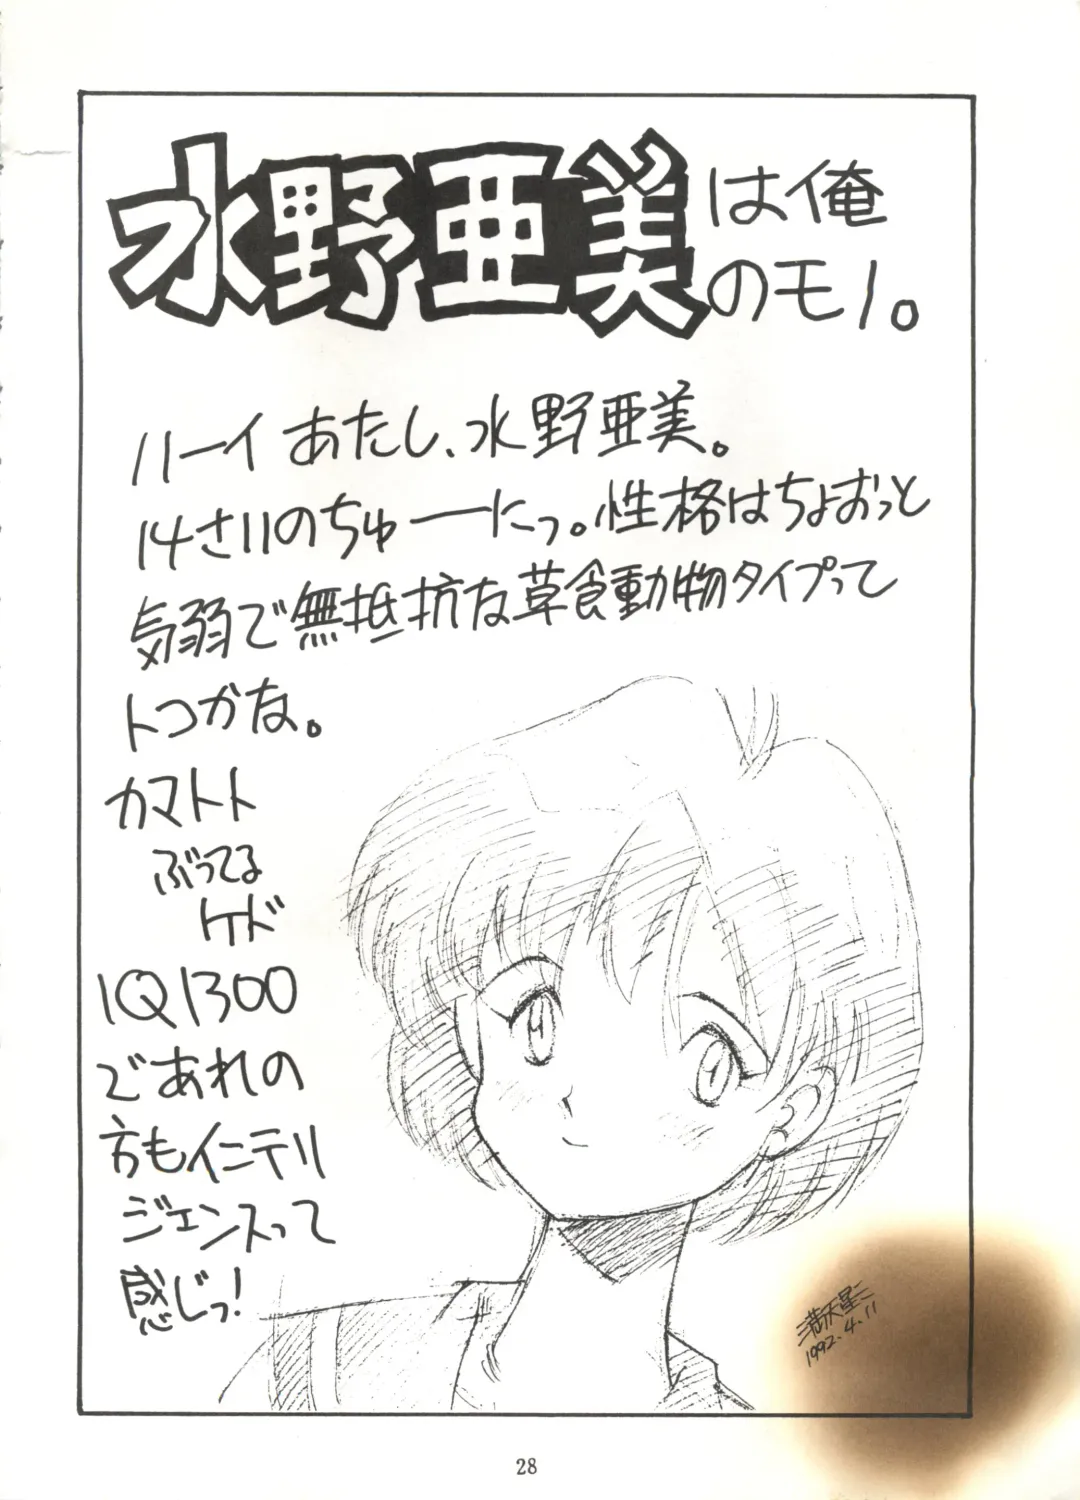 水野亜美は俺
のモノ。
ハーイ あたし、水野亜美。
14さいのちゅーにっ。性格はちょおっと
気弱で無抵抗な草食動物タイプって
トコかな。
カマトト
ぶってる
ケド
IQ1300
であれの
方もインテリ
ジェンスって
感じっ!
満天星二
1992.4.11
28